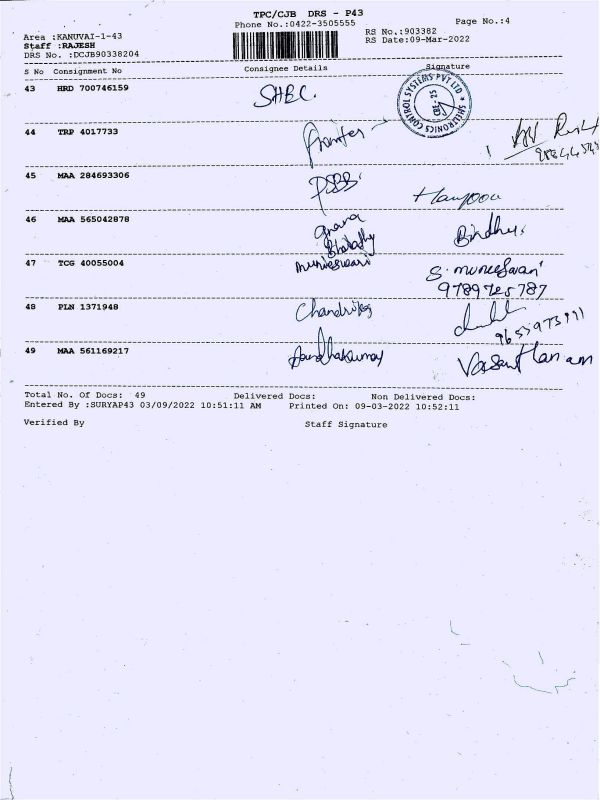 TPC/CJB DRS - P43
Phone No.:0422-3505555
Page No.:4
Area :KANUVAI-1-43
RS No.:903382
Staff :RAJESH
RS Date:09-Mar-2022
DRS No. :DCJB90338204
S No Consignment No Consignee Details Signature
43 HRD 700746159 SHBC.
44 TRP 4017733
45 MAA 284693306 PSBB
46 MAA 565042878 gnana Bindhu.
Bharathy
47 TCG 40055004 munieswari S. muneeswari
9789725787
48 PLN 1371948 Chandrika
49 MAA 561169217
Total No. Of Docs: 49 Delivered Docs: Non Delivered Docs:
Entered By :SURYAP43 03/09/2022 10:51:11 AM Printed On: 09-03-2022 10:52:11
Verified By Staff Signature